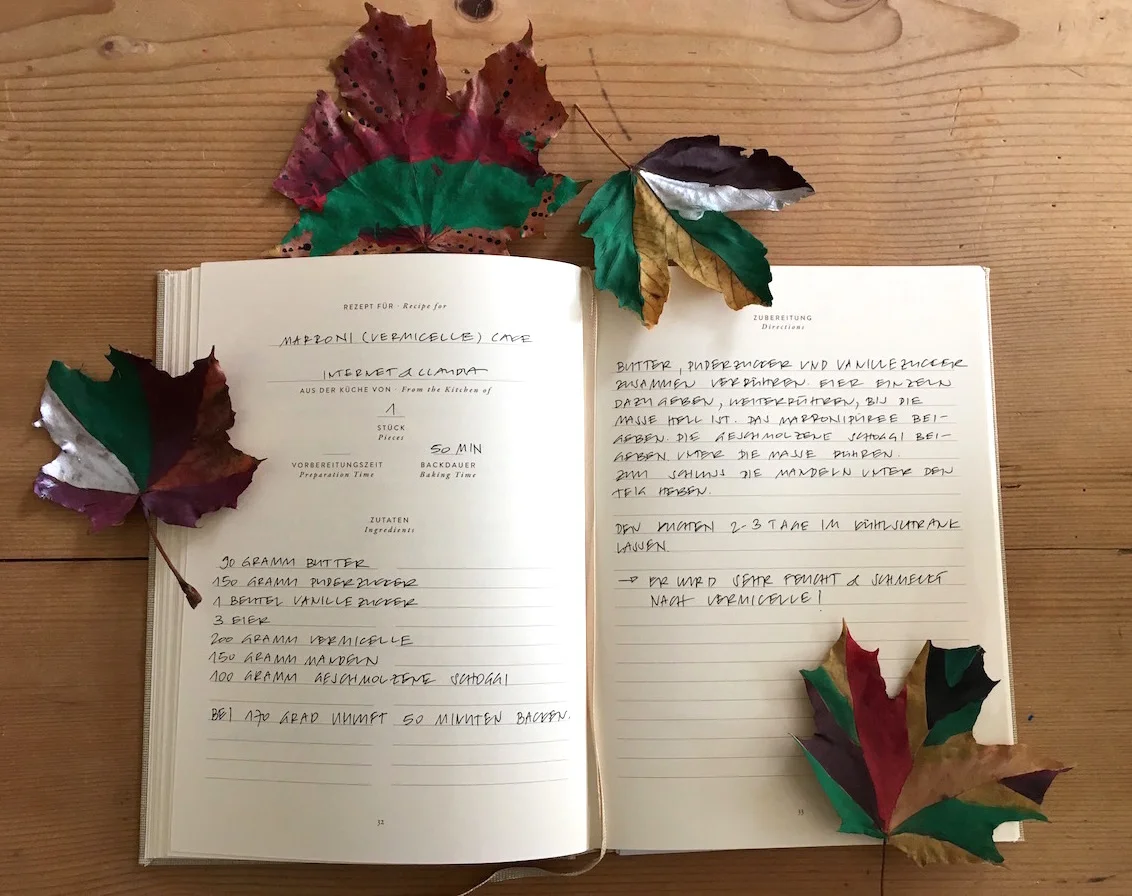 REZEPT FÜR · Recipe for
MARRONI (VERMICELLE) CAKE
INTERNET & CLAUDIA
AUS DER KÜCHE VON · From the Kitchen of
1
STÜCK
Pieces
VORBEREITUNGSZEIT
Preparation Time
50 MIN
BACKDAUER
Baking Time
ZUTATEN
Ingredients
90 GRAMM BUTTER
150 GRAMM PUDERZUCKER
1 BEUTEL VANILLEZUCKER
3 EIER
200 GRAMM VERMICELLE
150 GRAMM MANDELN
100 GRAMM GESCHMOLZENE SCHOGGI
BEI 170 GRAD UMLUFT 50 MINUTEN BACKEN.
32
ZUBEREITUNG
Directions
BUTTER, PUDERZUCKER UND VANILLEZUCKER
ZUSAMMEN VERRÜHREN. EIER EINZELN
DAZUGEBEN, WEITERRÜHREN, BIS DIE
MASSE HELL IST. DAS MARRONIPÜREE BEI-
GEBEN. DIE GESCHMOLZENE SCHOGGI BEI-
GEBEN UNTER DIE MASSE RÜHREN.
ZUM SCHLUSS DIE MANDELN UNTER DEN
TEIG HEBEN.
DEN KUCHEN 2-3 TAGE IM KÜHLSCHRANK
LASSEN.
→ ER WIRD SEHR FEUCHT & SCHMECKT
NACH VERMICELLE!
33